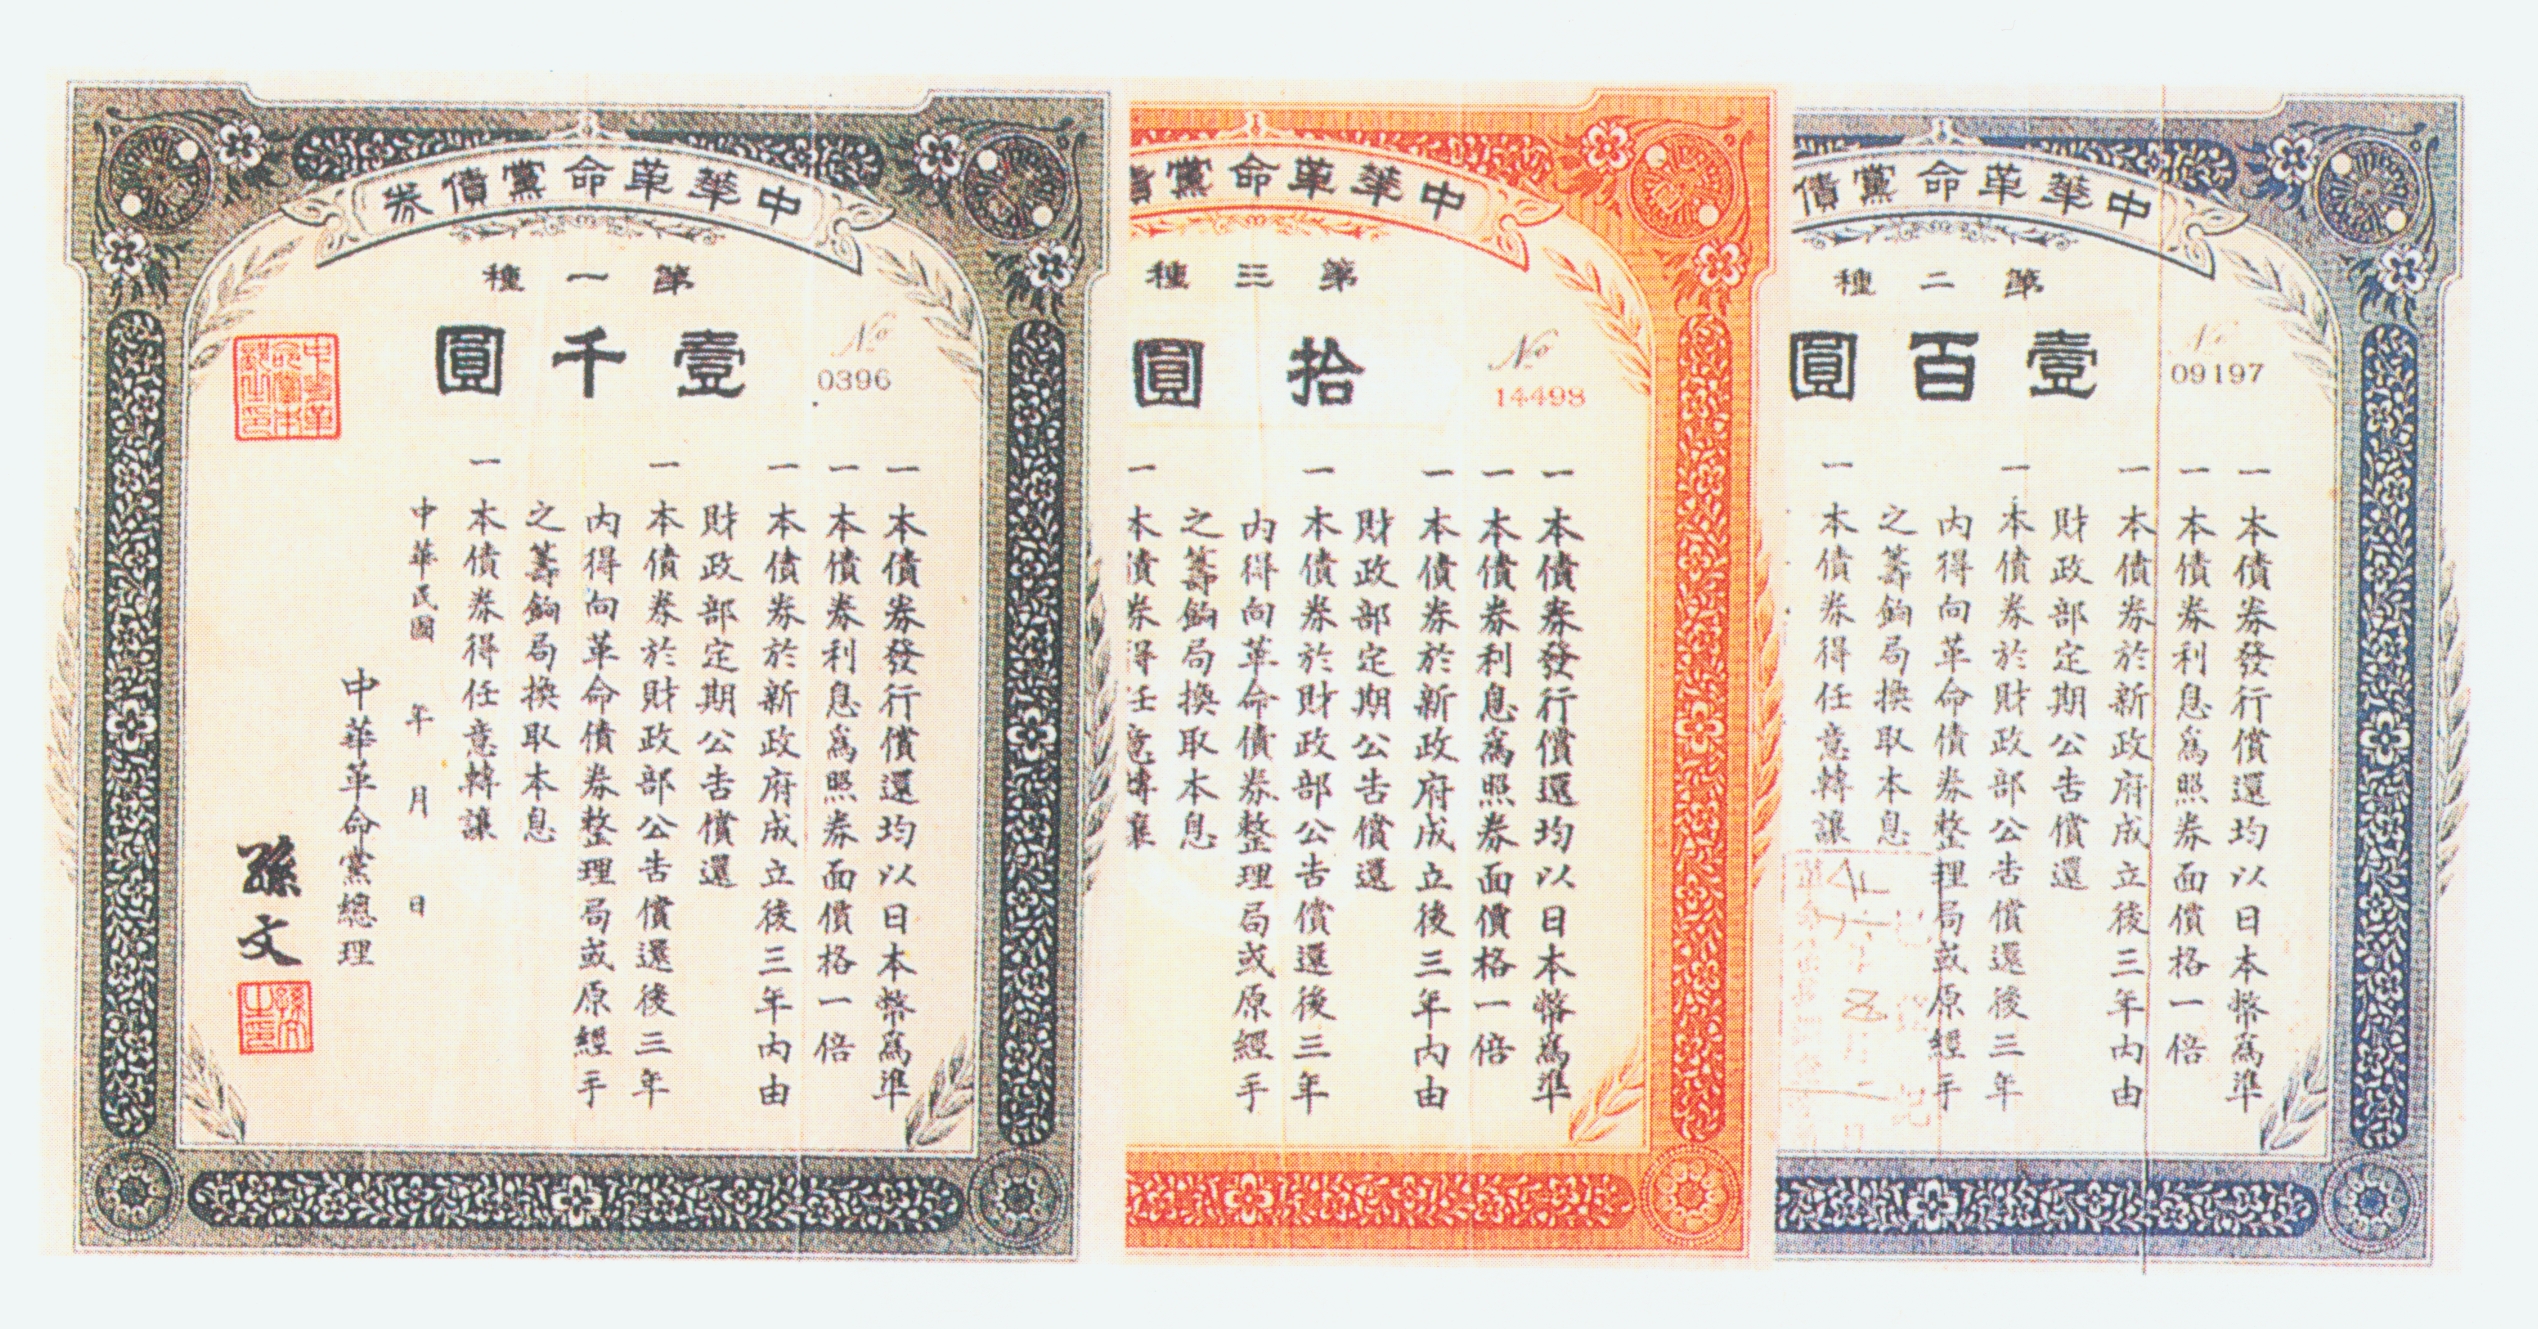 中華革命黨債券
第一種
壹千圓
No
0396
一 本債券發行償還均以日本幣為準
一 本債券利息為照券面價格一倍
一 本債券於新政府成立後三年內由
財政部定期公告償還
一 本債券於財政部公告償還後三年
內得向革命債券整理局或原經手
之籌餉局換取本息
一 本債券得任意轉讓
中華民國 年 月 日
中華革命黨總理
孫文
孫文之印
中華革命黨債
第三種
拾圓
No
14498
一 本債券發行償還均以日本幣為準
一 本債券利息為照券面價格一倍
一 本債券於新政府成立後三年內由
財政部定期公告償還
一 本債券於財政部公告償還後三年
內得向革命債券整理局或原經手
之籌餉局換取本息
一 本債券得任意轉讓
中華革命黨債
第二種
壹百圓
No
09197
一 本債券發行償還均以日本幣為準
一 本債券利息為照券面價格一倍
一 本債券於新政府成立後三年內由
財政部定期公告償還
一 本債券於財政部公告償還後三年
內得向革命債券整理局或原經手
之籌餉局換取本息
一 本債券得任意轉讓